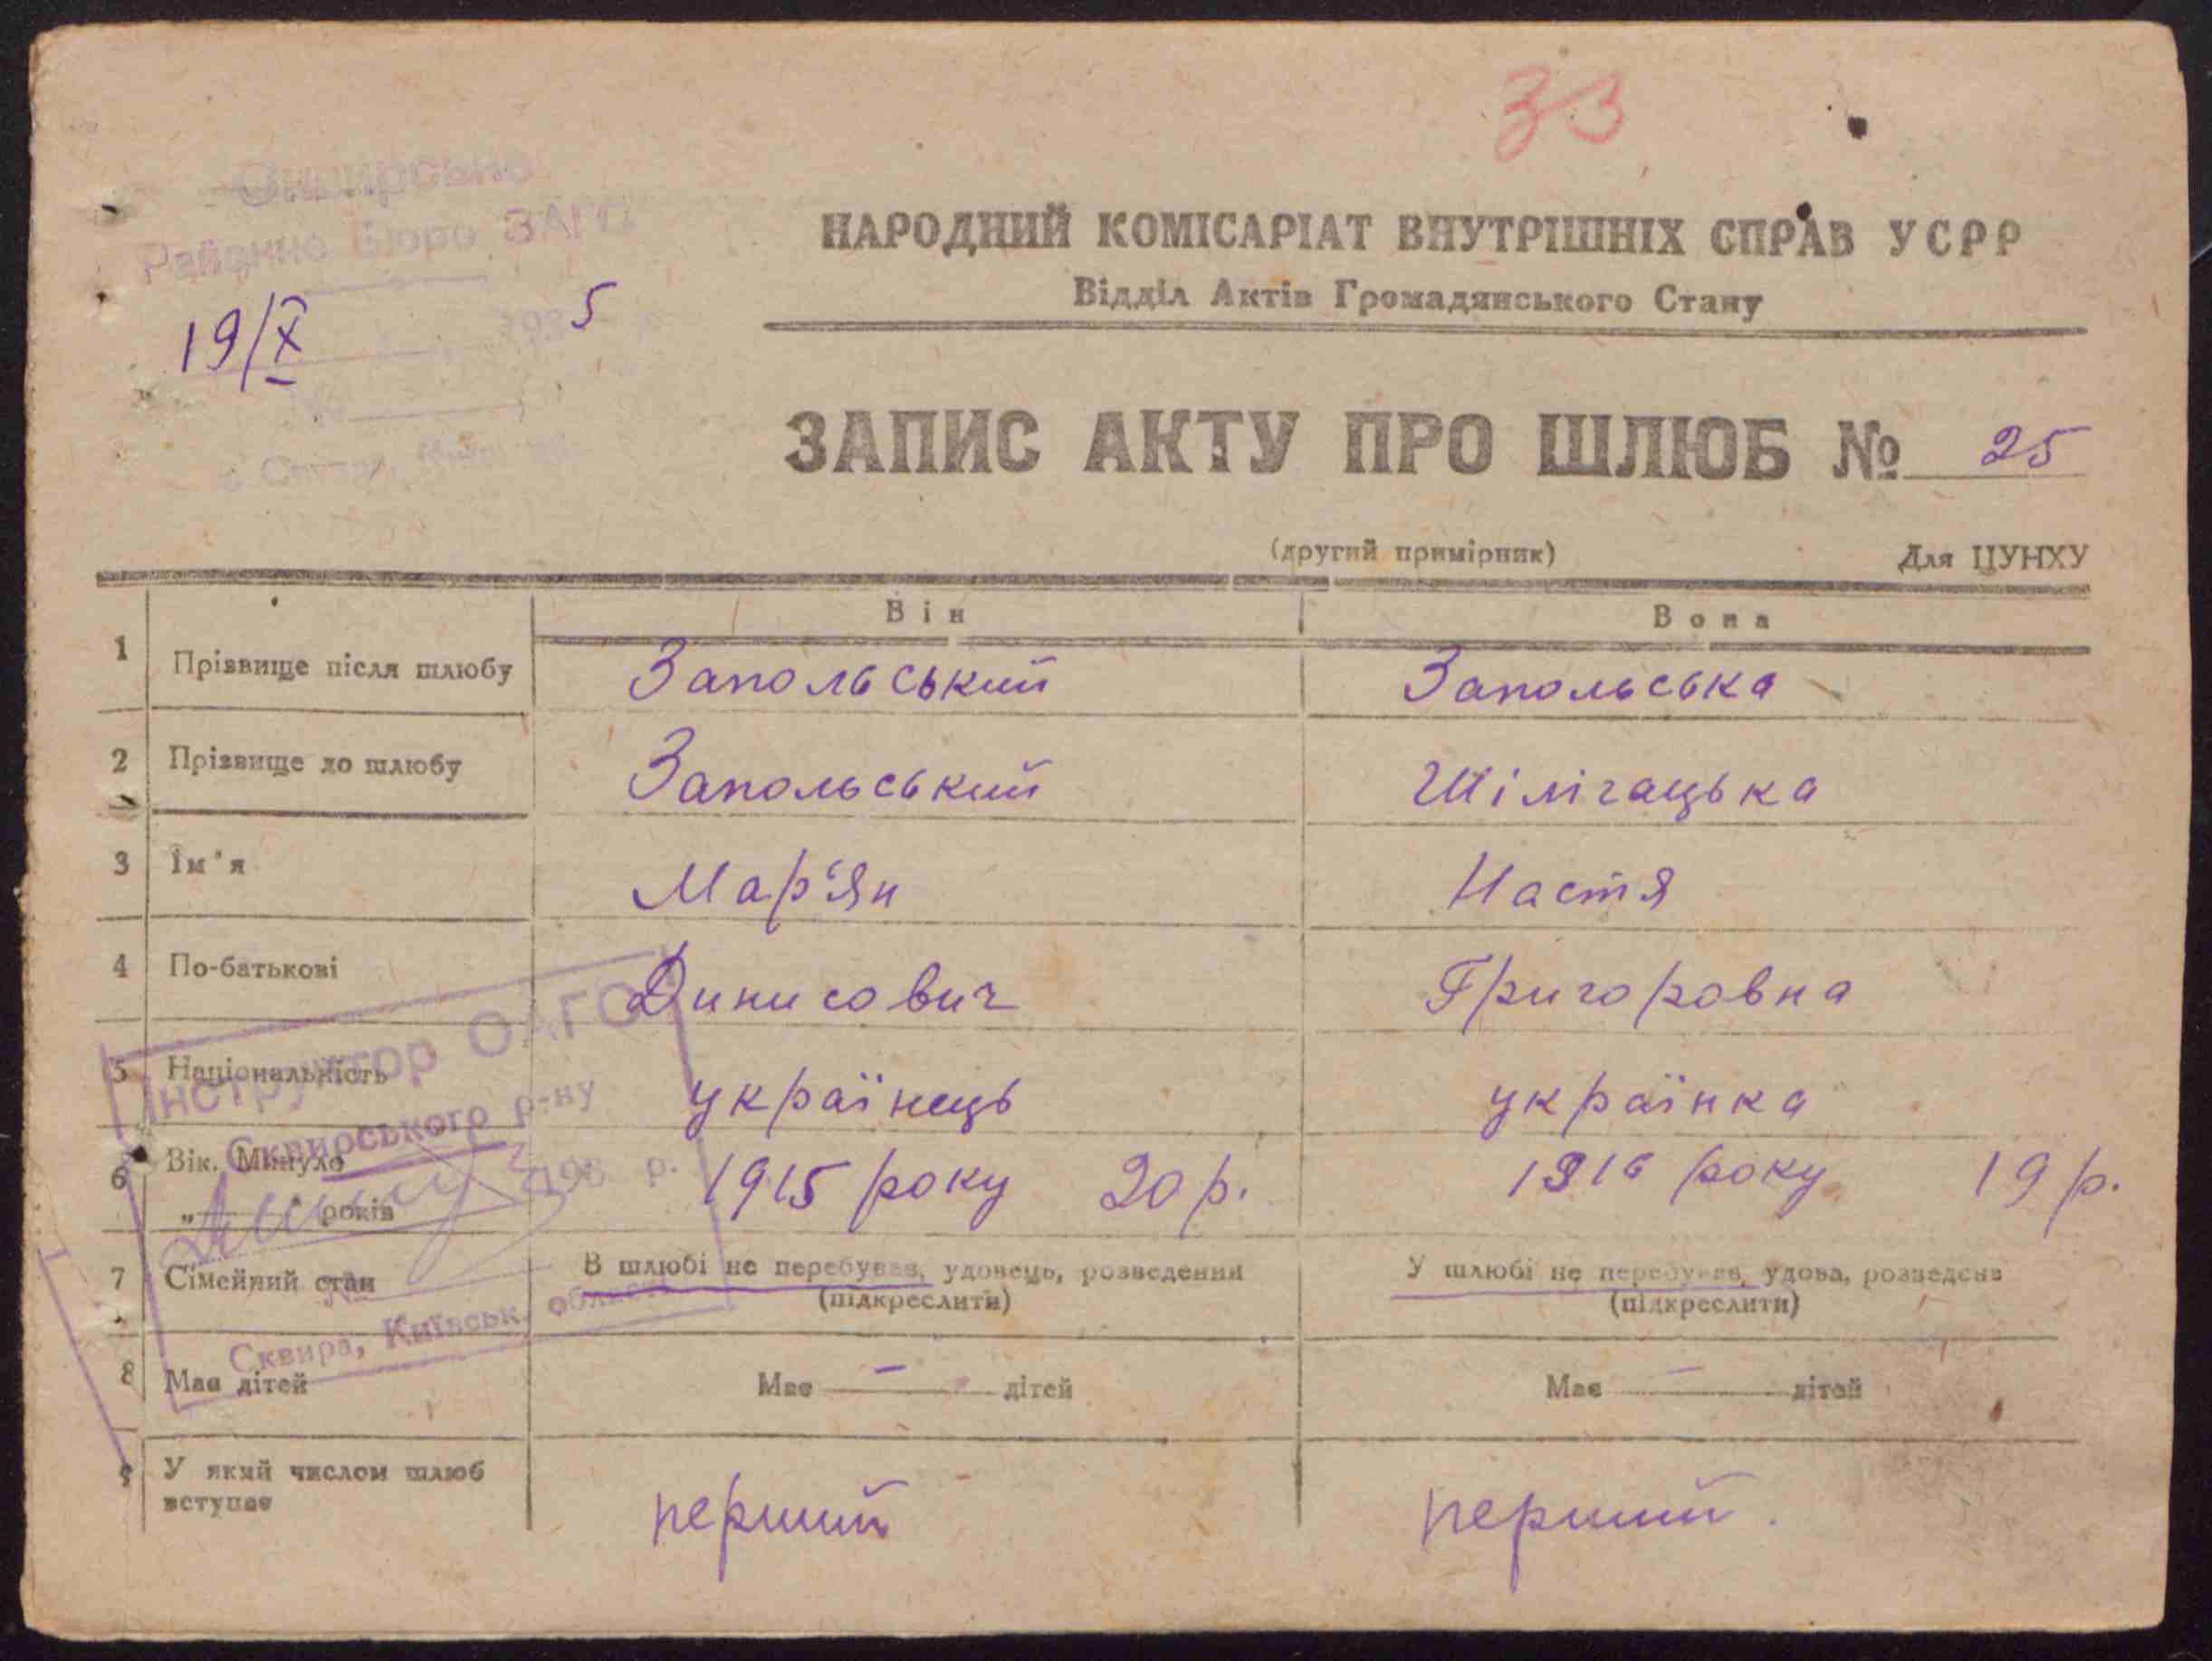 33
Районне Бюро ЗАГС
19/X 1935
НАРОДНИЙ КОМІСАРІАТ ВНУТРІШНІХ СПРАВ УСРР
Відділ Актів Громадянського Стану
ЗАПИС АКТУ ПРО ШЛЮБ № 25
(другий примірник) Для ЦУНХУ
Він Вона
1 Прізвище після шлюбу Запольський Запольська
2 Прізвище до шлюбу Запольський Шілігацька
3 Ім'я Мар'ян Настя
4 По-батькові Динисович Григоровна
5 Національність українець українка
6 Вік. Минуло 1915 року 20 р. 1916 року 19 р.
„ років
7 Сімейний стан В шлюбі не перебував, удовець, розведений У шлюбі не перебував, удова, розведена
(підкреслити) (підкреслити)
8 Має дітей Має — дітей Має — дітей
9 У який числом шлюб вступає перший перший.
Інструктор ОАГС
Сквирського р-ну
193 р.
№
Сквира, Київськ. області